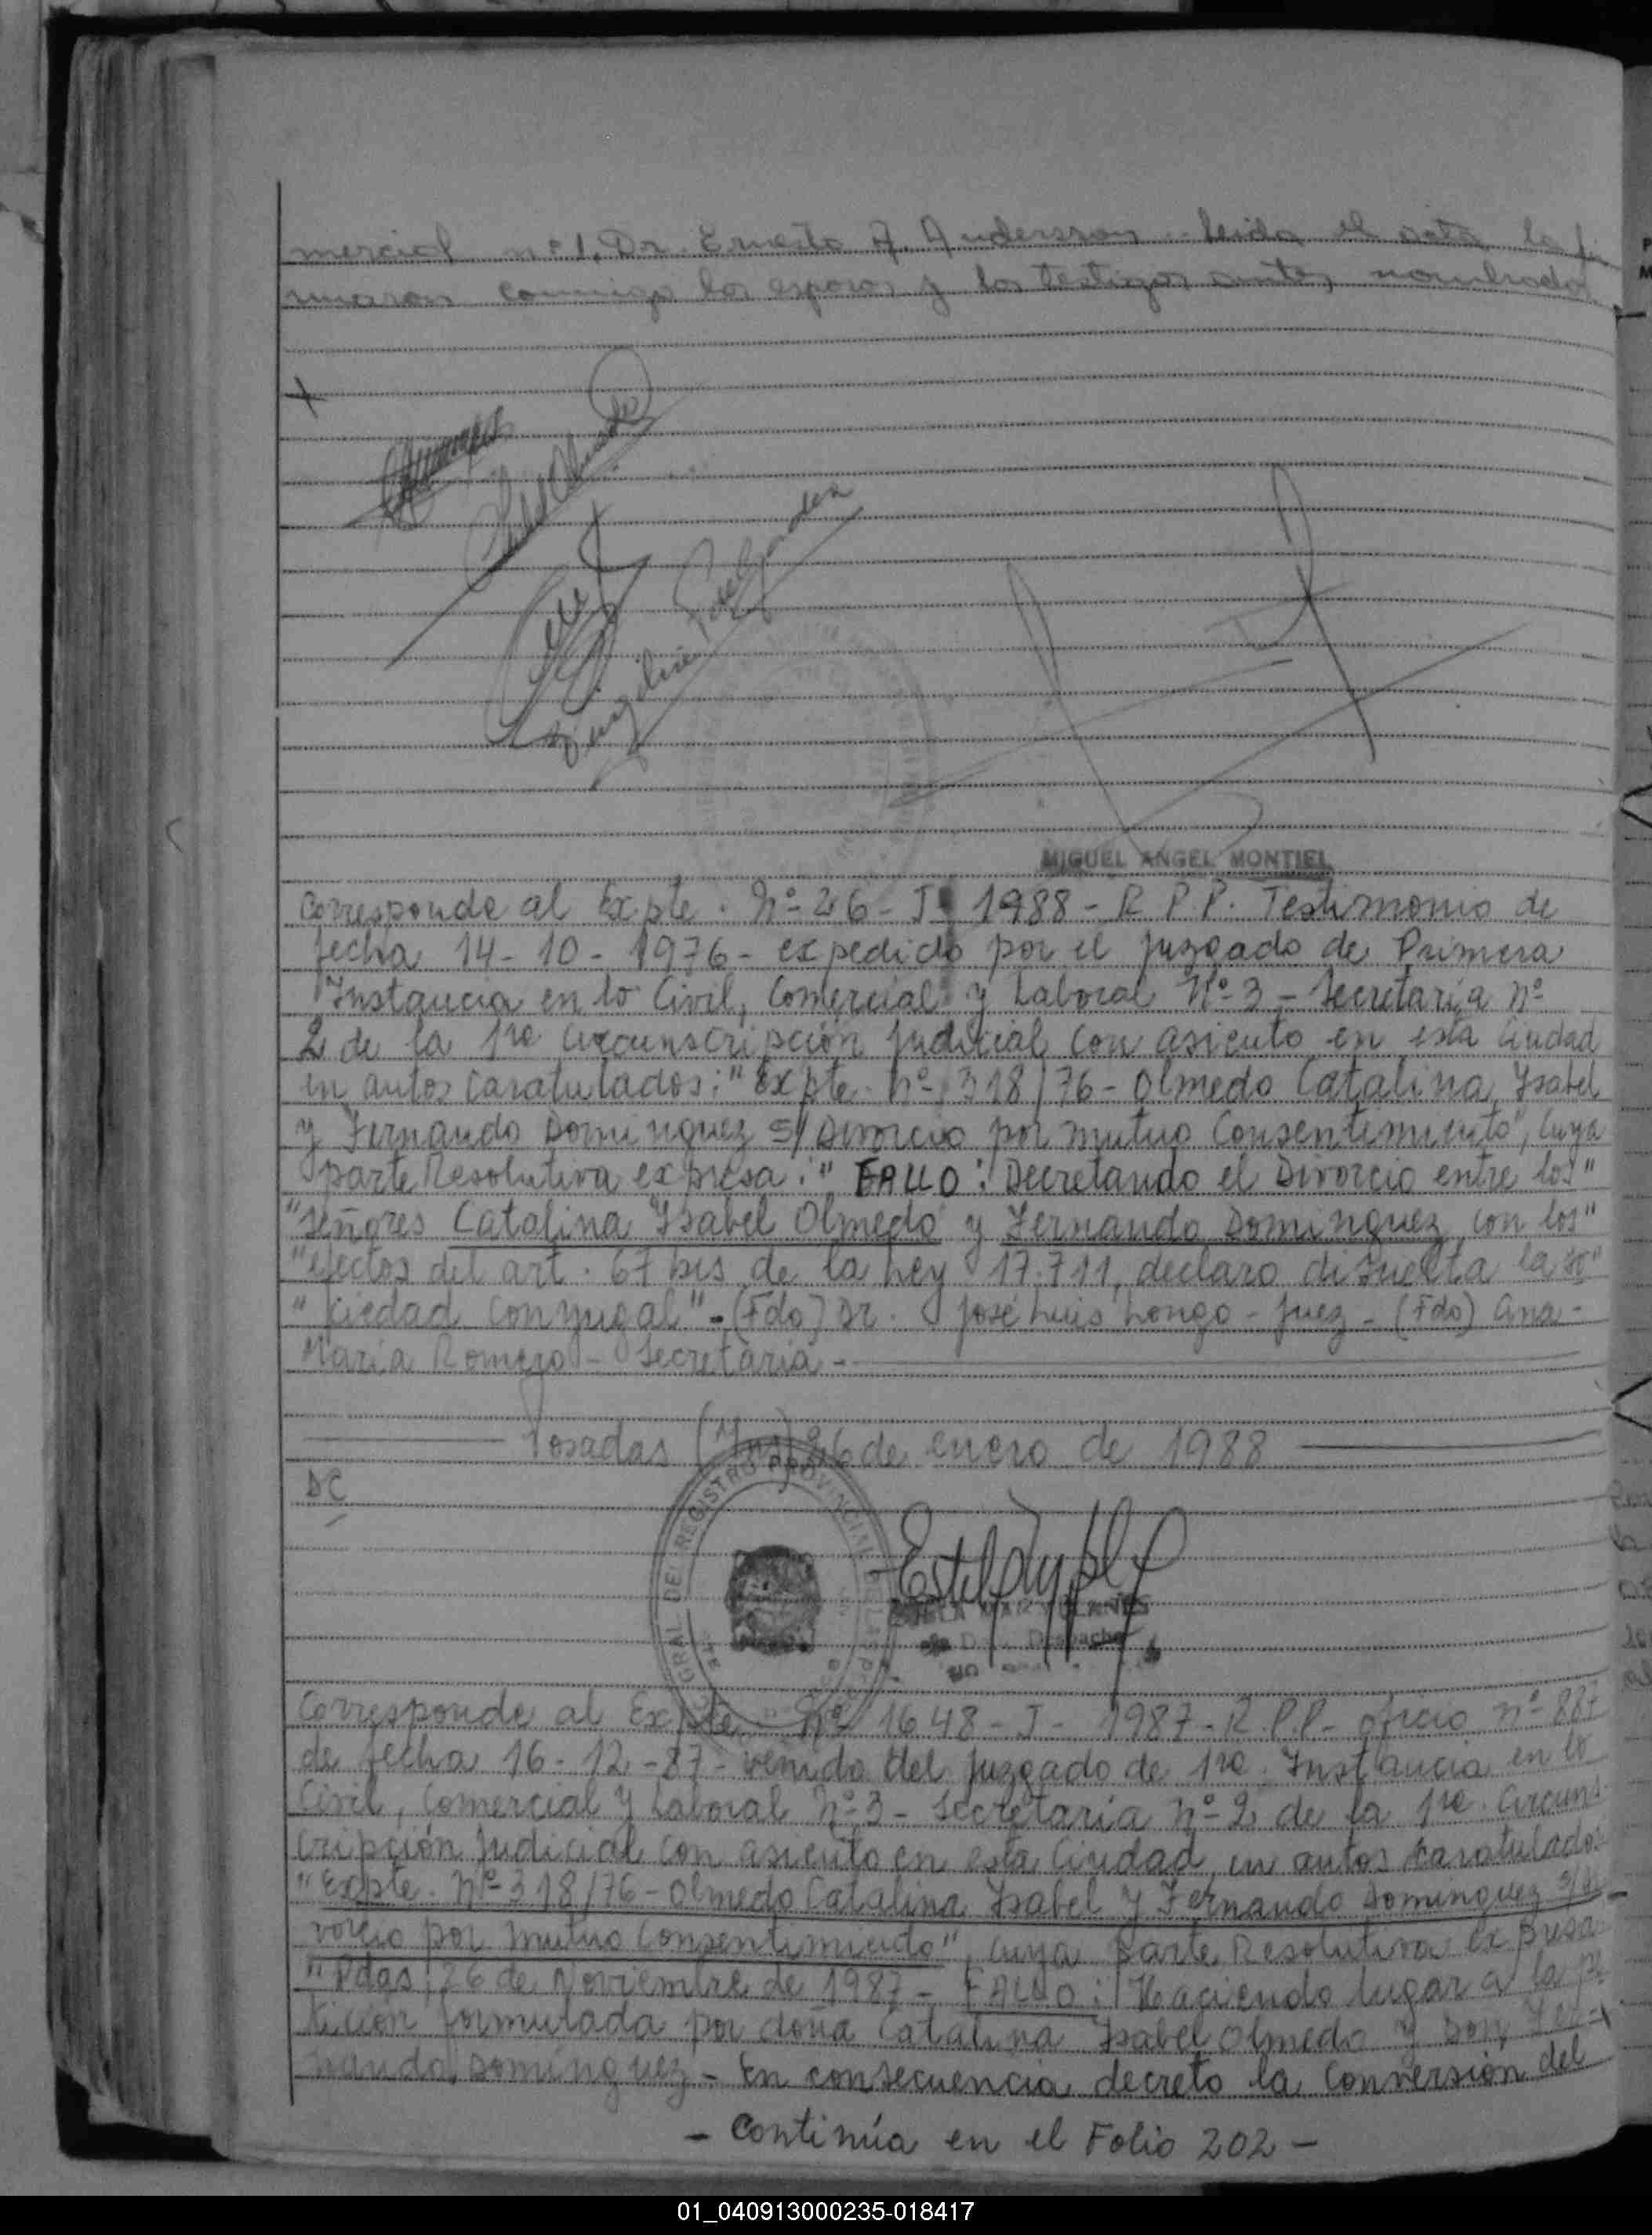 mercial nº1, Dr. Ernesto A. Andersson. leida el acta la fir
maron conmigo los esposos y los testigos antes nombrados
MIGUEL ANGEL MONTIEL
Corresponde al Expte. Nº 26 - J 1988 - R P.P. Testimonio de
fecha 14 - 10 - 1976 - expedido por el juzgado de Primera
Instancia en lo Civil, Comercial y Laboral Nº 3 - Secretaria nº
2 de la 1ra circunscripción judicial con asiento en esta Ciudad
en autos caratulados: "Expte. nº 318/76 - Olmedo Catalina Isabel
y Fernando Dominguez s/ Divorcio por mutuo Consentimiento", cuya
parte Resolutiva expresa: " FALLO: Decretando el Divorcio entre los"
"señores Catalina Isabel Olmedo y Fernando Dominguez con los"
"efectos del art. 67 bis de la Ley 17.711, declaro disuelta la so"
"ciedad conyugal" - (Fdo) Dr. José Luis Longo - Juez - (Fdo) Ana -
Maria Romero - Secretaria -
Posadas (Mnes) 26 de enero de 1988
DC
GRAL DEL REGISTRO PROVINCIAL
Despacho
Corresponde al Expte Nº 1648 - J - 1987 - R.P.P. - oficio nº 887
de fecha 16 - 12 - 87 - venido del juzgado de 1ra. Instancia en lo
Civil, Comercial y Laboral Nº 3 - Secretaria nº 2 de la 1ra. Circuns
cripción judicial con asiento en esta Ciudad, en autos caratulados
"Expte. Nº 318/76 - Olmedo Catalina Isabel y Fernando Dominguez s/di-
vorcio por mutuo consentimiento", cuya parte Resolutiva expresa
"Pdas, 26 de Noviembre de 1987 - FALLO: Haciendo lugar a la pe
tición formulada por doña Catalina Isabel Olmedo y Don Fer-
nando Dominguez - En consecuencia decreto la Conversión del
- Continúa en el Folio 202 -
01_040913000235-018417